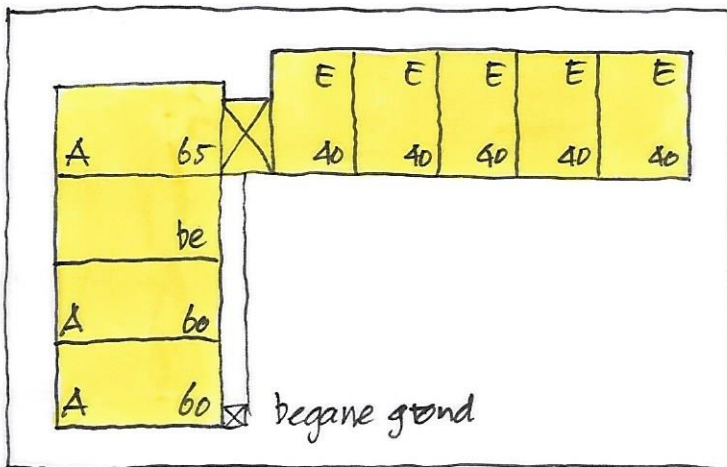 E E E E E
A 65 40 40 40 40 40
be
A 60
A 60 begane grond